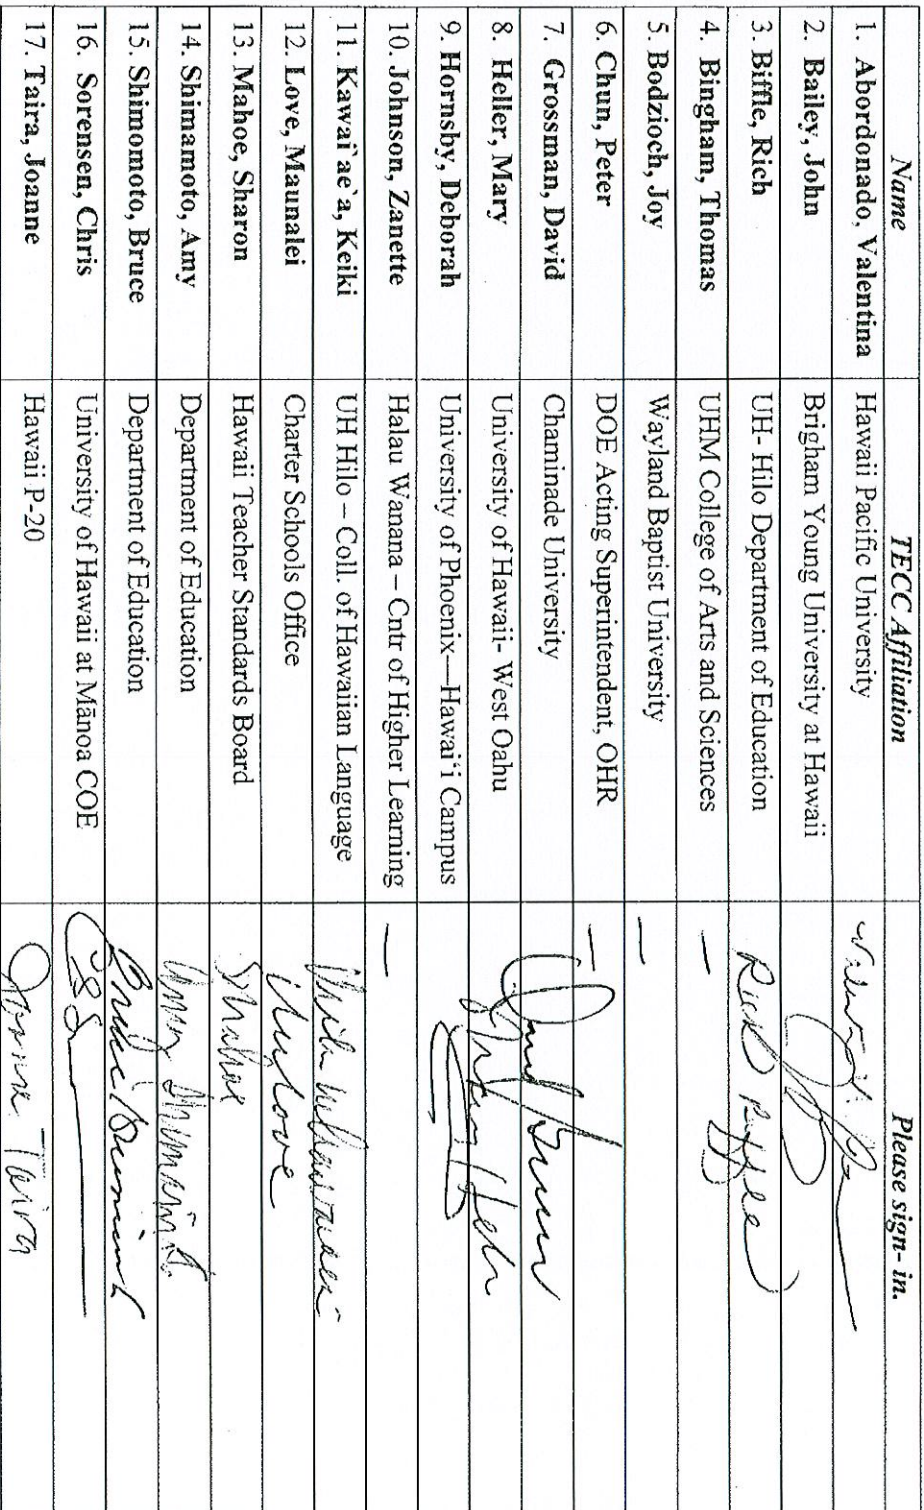 Name TECC Affiliation Please sign- in.
1. Abordonado, Valentina Hawaii Pacific University
2. Bailey, John Brigham Young University at Hawaii
3. Biffle, Rich UH- Hilo Department of Education Rich Biffle
4. Bingham, Thomas UHM College of Arts and Sciences —
5. Bodzioch, Joy Wayland Baptist University —
6. Chun, Peter DOE Acting Superintendent, OHR —
7. Grossman, David Chaminade University
8. Heller, Mary University of Hawaii- West Oahu
9. Hornsby, Deborah University of Phoenix—Hawai‘i Campus
10. Johnson, Zanette Halau Wanana – Cntr of Higher Learning —
11. Kawai`ae`a, Keiki UH Hilo – Coll. of Hawaiian Language
12. Love, Maunalei Charter Schools Office
13. Mahoe, Sharon Hawaii Teacher Standards Board SMahoe
14. Shimamoto, Amy Department of Education Amy Shimamoto
15. Shimomoto, Bruce Department of Education
16. Sorensen, Chris University of Hawaii at Mānoa COE
17. Taira, Joanne Hawaii P-20 Joanne Taira